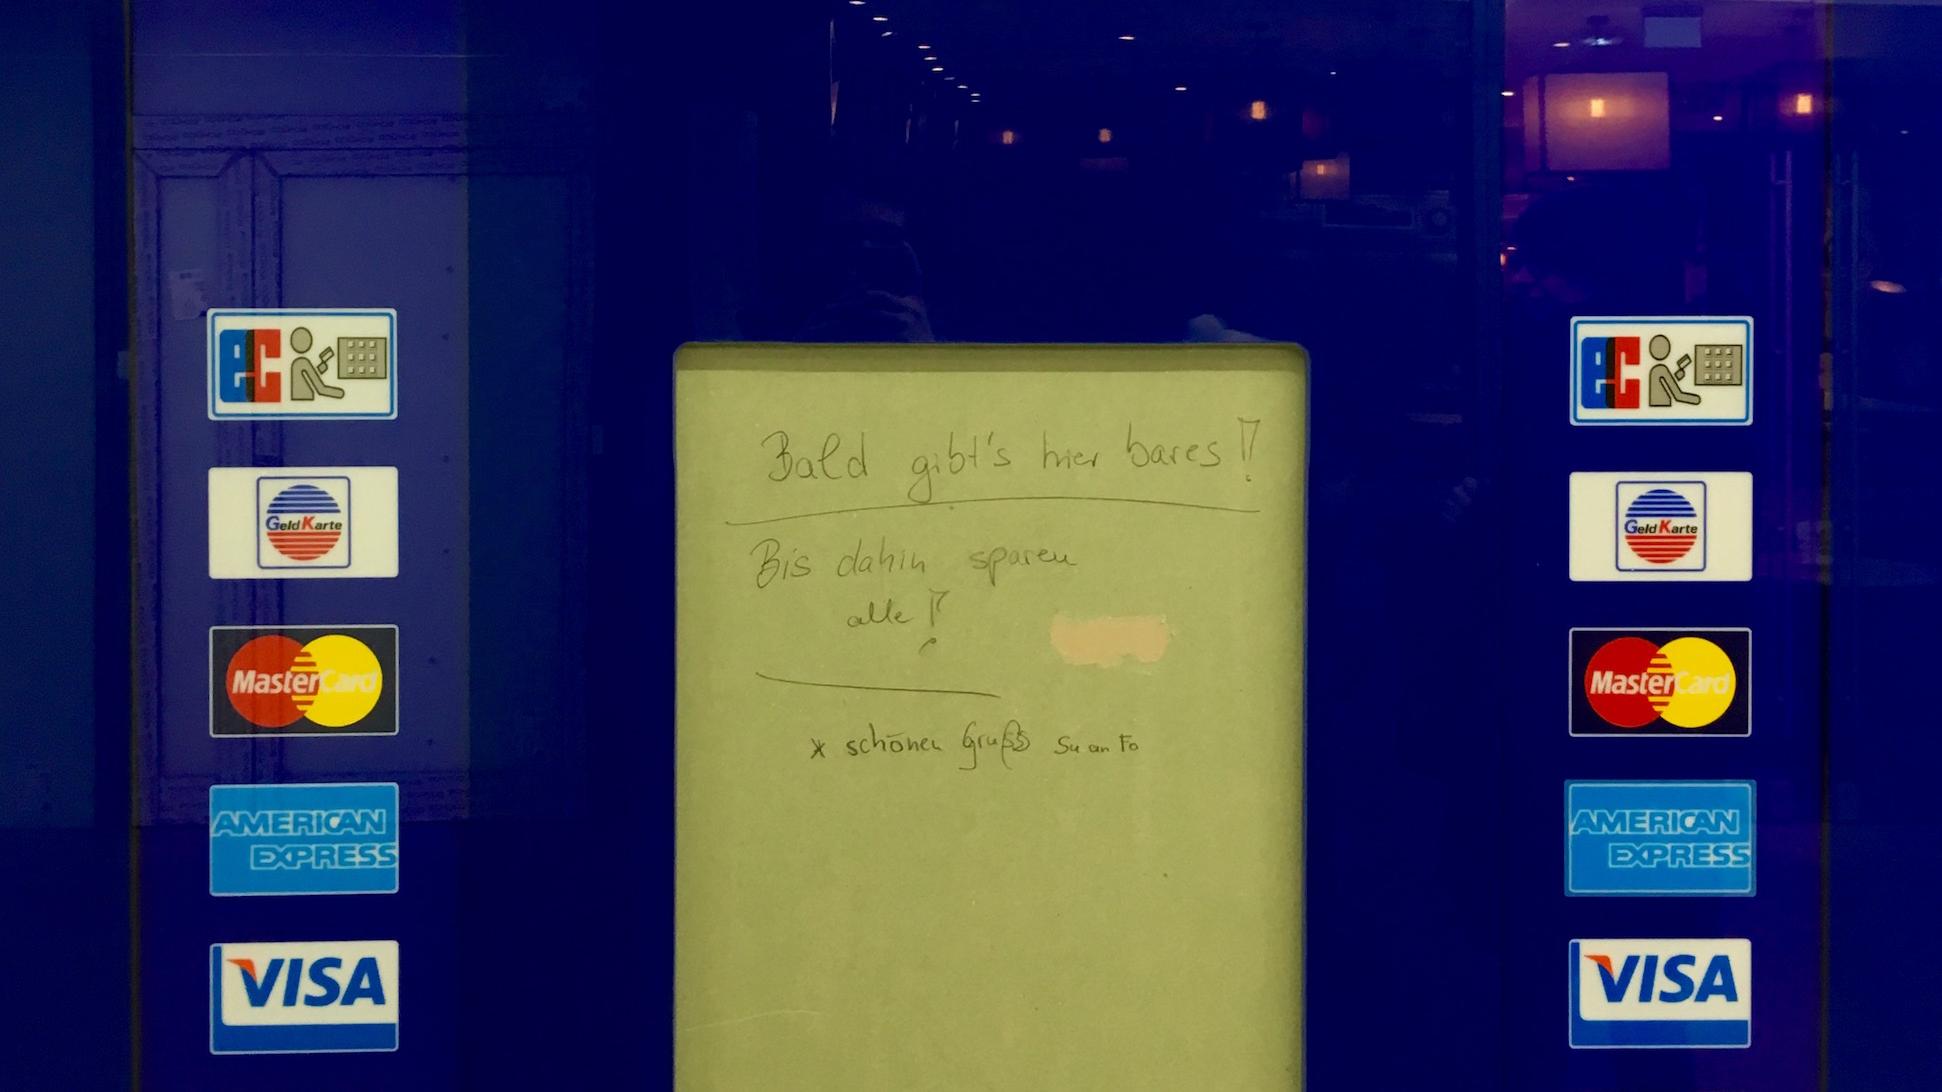 ec
GeldKarte
MasterCard
AMERICAN
EXPRESS
VISA
Bald gibt's hier bares!
Bis dahin sparen
alle!
* schönen Gruß Su an Fo
ec
GeldKarte
MasterCard
AMERICAN
EXPRESS
VISA